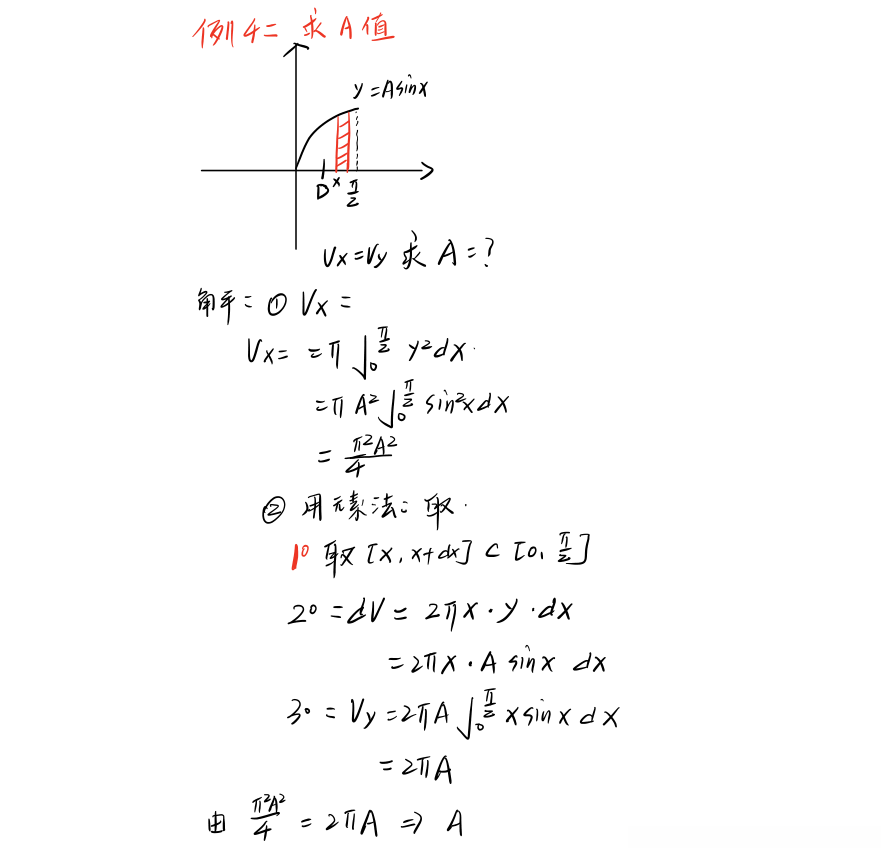 例4: 求A值
y=Asinx
D x π/2
Vx=Vy 求 A=?
解: ① Vx:
Vx= =π∫₀^(π/2) y²dx.
=πA²∫₀^(π/2) sin²xdx
=π²A²/4
② 用元素法: 取.
1° 取[x, x+dx]⊂[0, π/2]
2°: dV = 2πx·y·dx
=2πx·A sinx dx
3°: Vy=2πA∫₀^(π/2) xsinxdx
=2πA
由 π²A²/4 = 2πA ⇒ A